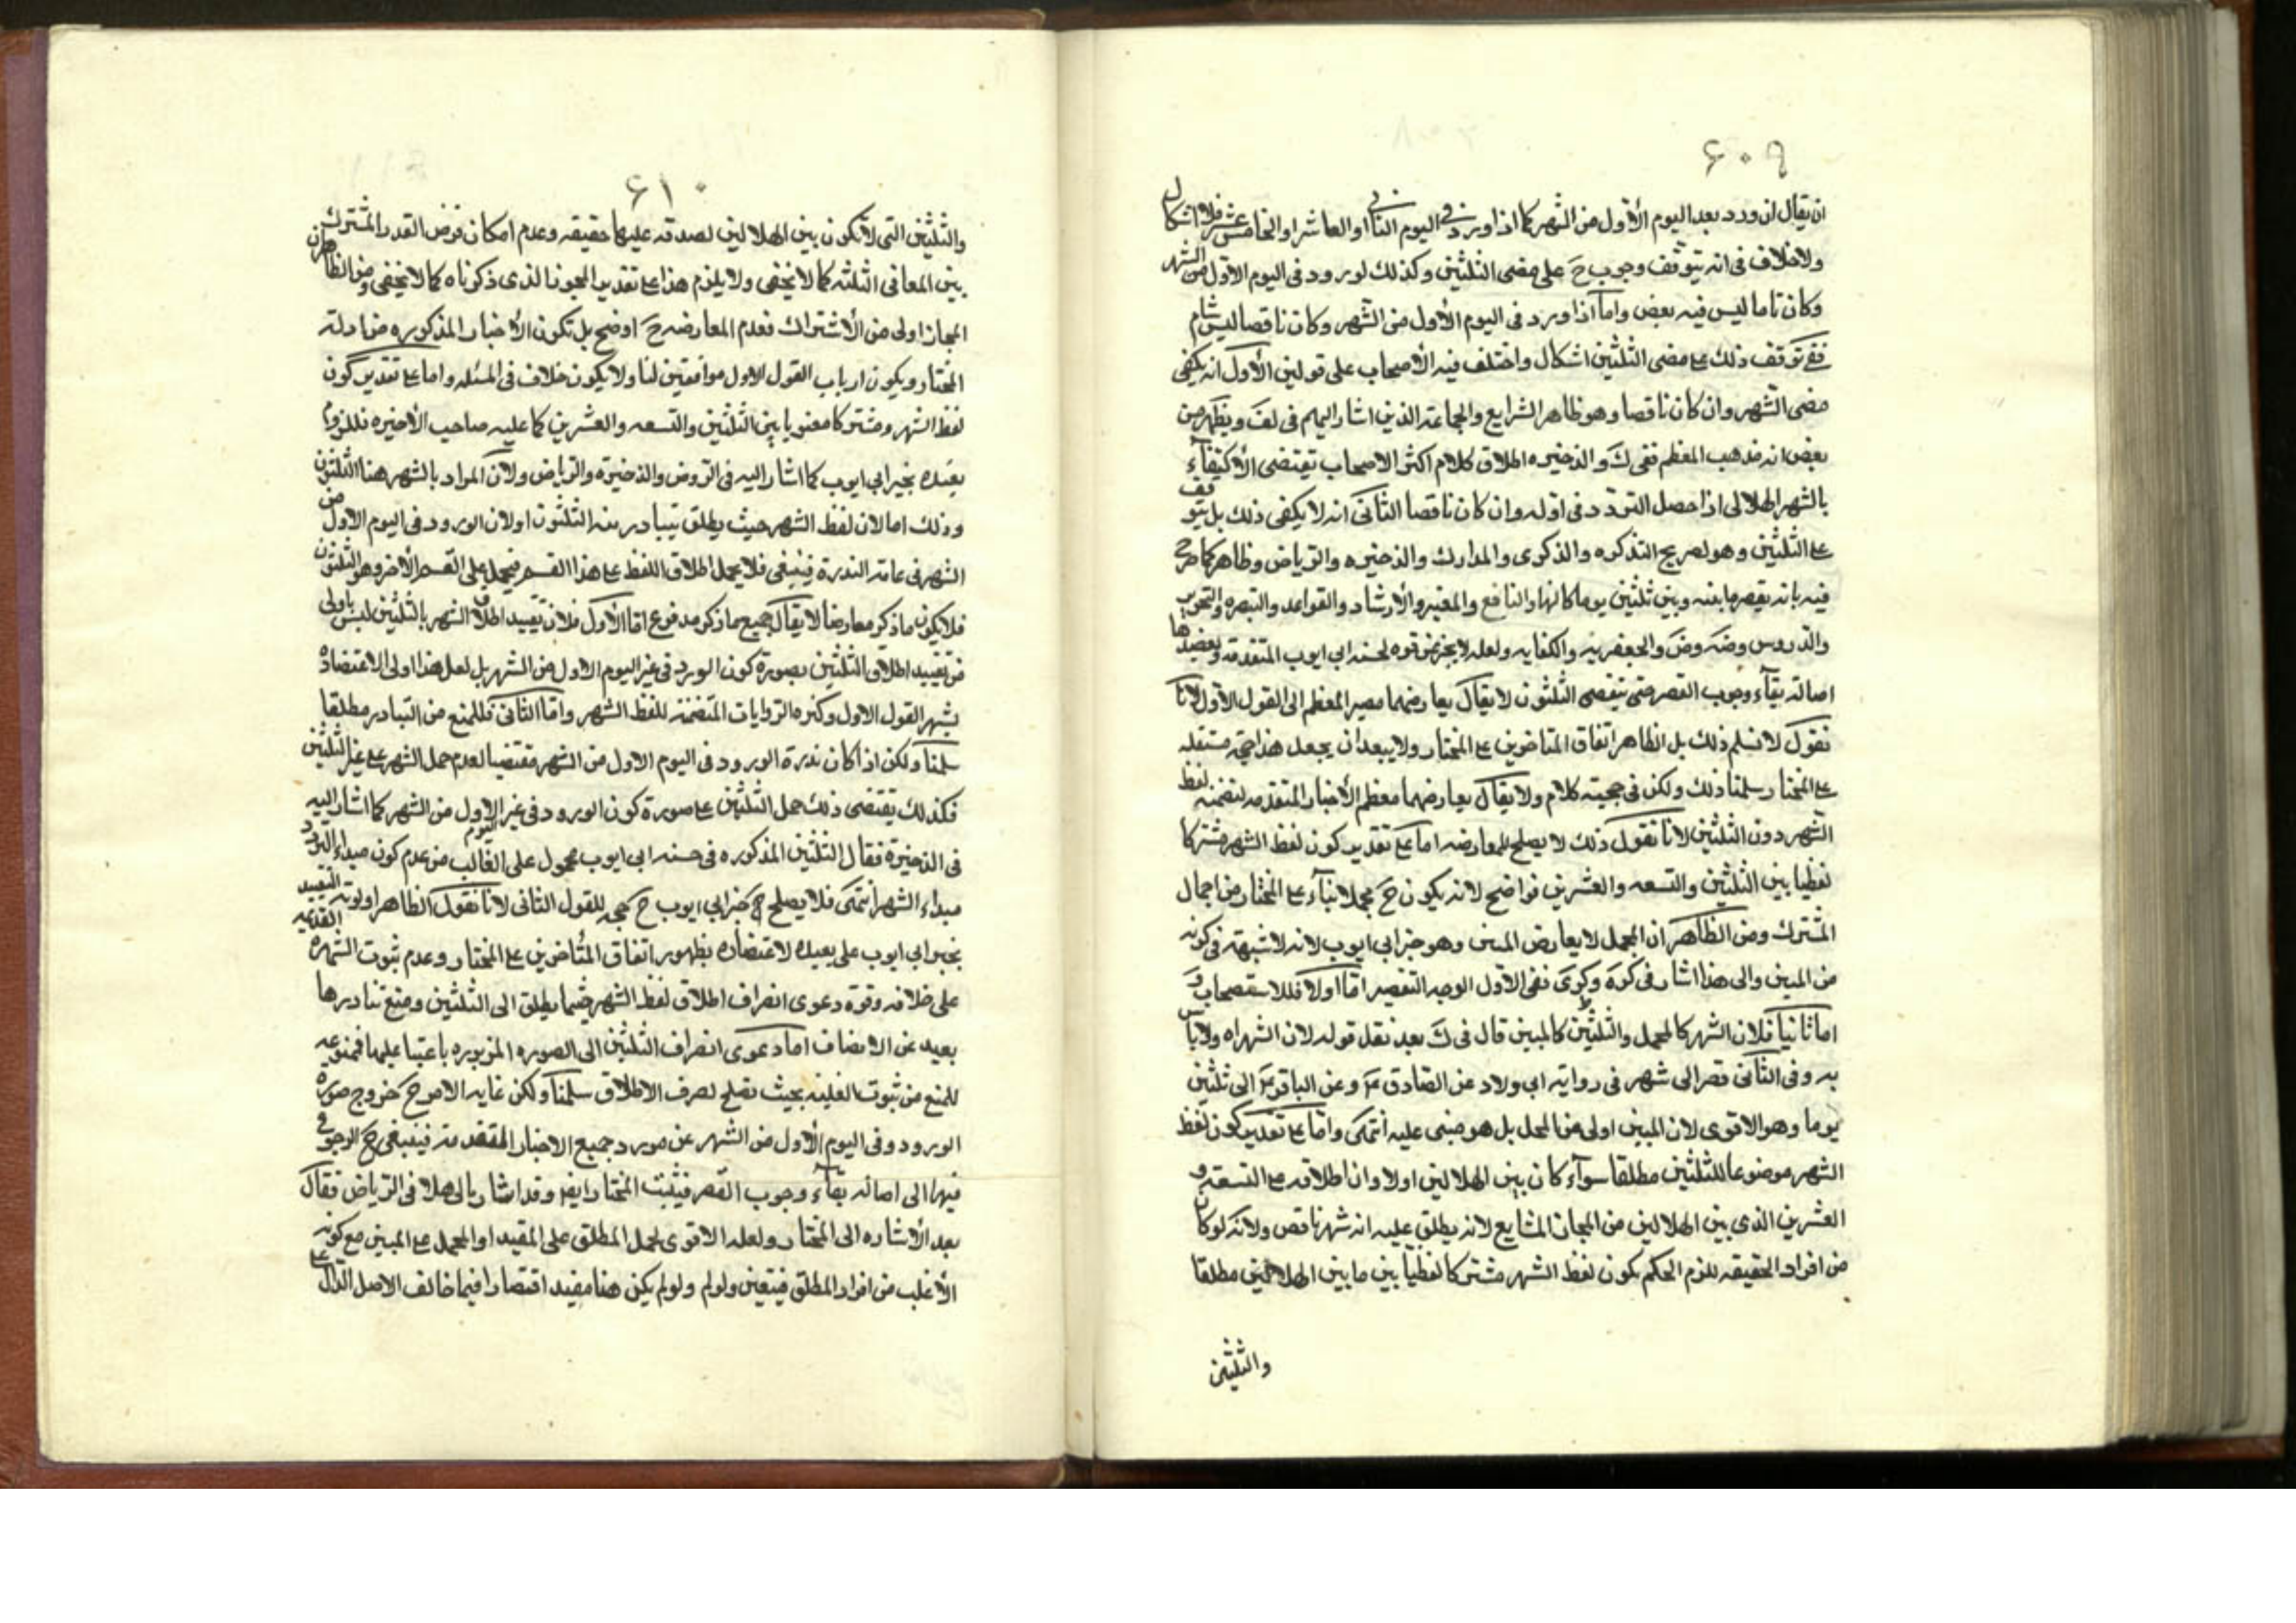 ۶۰۹
ان يقال ان ورد بعد اليوم الأول من الشهر كما اذا ورد فى اليوم الثانى او العاشر او الخامس عشر فلا اشكال
ولا خلاف فى انه يتوقف وجوب ح على مضى الثلثين وكذلك لو ورد فى اليوم الاول من الشهر
وكان تاما ليس فيه بعض واما اذا ورد فى اليوم الأول من الشهر وكان ناقصا ليس بتام
ففى توقف ذلك على مضى الثلثين اشكال واختلف فيه الأصحاب على قولين الأول انه يكفى
مضى الشهر وان كان ناقصا وهو ظاهر الشرايع والجماعة الذين اشار اليهم فى لف ويظهر من
بعض انه مذهب المعظم ففى ك والذخيره اطلاق كلام اكثر الاصحاب يقتضى الأكتفآء
بالشهر الهلالى اذا حصل التردد فى اوله وان كان ناقصا الثانى انه لا يكفى ذلك بل يتوقف
على الثلثين وهو لصريح التذكره والذكرى والمدارك والذخيره والرياض وظاهر كما صرح
فيه بانه يقصر ما بينه وبين ثلثين يوما كالنهاية والنافع والمعتبر والأرشاد والقواعد والتبصره والتحرير
والدروس وضه وض والجعفريه والكفايه ولعله لا يخ عن قوه لحسنه ابى ايوب المتقدمه ويعضدها
اصالة بقآء وجوب القصر حتى ينقضى الثلثون لا يقال يعارضهما مصير المعظم الى القول الأول لانا
نقول لا نسلم ذلك بل الظاهر اتفاق المتاخرين على المختار ولا يبعد ان يجعل هذا حجة مستقله
على المختار سلمنا ذلك ولكن فى حجيته كلام ولا يقال يعارضهما معظم الأخبار المتقدمه لتضمنه لفظ
الشهر دون الثلثين لانا نقول ذلك لا يصلح للمعارضه اما على تقدير كون لفظ الشهر مشتركا
لفظيا بين الثلثين والتسعه والعشرين فواضح لانه يكون ح مجملا بنآء على المختار من اجمال
المشترك ومن الظاهر ان المجمل لا يعارض المبين وهو خبر ابى ايوب لانه لا شبهة فى كونه
من المبين والى هذا اشار فى كره وكرى ففى الاول الوجه التقصير اما اولا فللاستصحاب و
اما ثانيا فلان الشهر كالمجمل والثلثين كالمبين قال فى ك بعد نقل قوله لان الشهر اه ولا باس
به وفى الثانى قصر الى شهر فى رواية ابى ولاد عن الصادق ع وعن الباقر ع الى ثلثين
يوما وهو الاقوى لان المبين اولى من المجمل بل هو مبنى عليه انتهى واما على تقدير كون لفظ
الشهر موضوعا للثلثين مطلقا سوآء كان بين الهلالين اولا وان اطلاقه على التسعة و
العشرين الذى بين الهلالين من المجاز الشايع لانه يطلق عليه انه شهر ناقص ولانه لو كان
من افراد الحقيقه للزم الحكم بكون لفظ الشهر مشتركا لفظيا بين ما بين الهلالين مطلقا
والثلثين
۶۱۰
والثلثين التى لا تكون بين الهلالين لصدقه عليهما حقيقه وعدم امكان فرض القدر المشترك
بين المعانى الثلثه كما لا يخفى ولا يلزم هذا على تقدير المجوز الذى ذكرناه كما لا يخفى ومن الظاهر ان
المجاز اولى من الأشتراك فعدم المعارضه ح اوضح بل تكون الأخبار المذكوره من ادلة
المختار ويكون ارباب القول الاول موافقين لنا ولا يكون خلاف فى المسئله واما على تقدير كون
لفظ الشهر مشتركا معنويا بين الثلثين والتسعه والعشرين كما عليه صاحب الأخيره فللزوم
تقييده بخبر ابى ايوب كما اشار اليه فى الروض والذخيرة والرياض ولان المراد بالشهر هنا الثلثون
وذلك اما لان لفظ الشهر حيث يطلق يتبادر منه الثلثون او لان الورود فى اليوم الاول من
الشهر فى غاية الندرة فينبغى فلا يحمل اطلاق اللفظ على هذا القسم فيحمل على القسم الأخر وهو الثلثون
فلا يكون ما ذكر معارضا لا يقال جميع ما ذكر مدفوع اما الأول فلان تقييد اطلاق الشهر بالثلثين ليس باولى
من تقييد اطلاق الثلثين بصورة كون الورود فى غير اليوم الاول من الشهر بل لعل هذا اولى لاعتضاده
بشهرة القول الاول وكثرة الروايات المتضمنة للفظ الشهر واما الثانى فللمنع من التبادر مطلقا
سلمنا ولكن اذا كان ندرة الورود فى اليوم الاول من الشهر مقتضيا لعدم حمل الشهر على غير الثلثين
فكذلك يقتضى ذلك حمل الثلثين على صورة كون الورود فى غير اليوم الاول من الشهر كما اشار اليه
فى الذخيرة فقال الثلثين المذكوره فى حسنه ابى ايوب محمول على الغالب من عدم كون مبداء التردد
مبداء الشهر انتهى فلا يصلح ح خبر ابى ايوب ح حجه للقول الثانى لانا نقول الظاهر اولويه التقييد
بخبر ابى ايوب على تقييده لاعتضاده بظهور اتفاق المتأخرين على المختار وعدم ثبوت الشهره القديمه
على خلافه وقوة دعوى انصراف اطلاق لفظ الشهر حيثما يطلق الى الثلثين ومنع تبادرها
بعيد عن الانصاف اما دعوى انصراف الثلثين الى الصوره المزبوره باعتبار غلبها فممنوعه
للمنع من ثبوت الغلبه بحيث تصلح لصرف الاطلاق سلمنا ولكن غايه الامر ح خروج صوره
الورود فى اليوم الأول من الشهر عن مورد جميع الاخبار المتقدمه فينبغى ح الرجوع
فيها الى اصاله بقآء وجوب القصر فيثبت المختار ايضا وقد اشار الى هذا فى الرياض فقال
بعد الأشاره الى المختار ولعله الاقوى لحمل المطلق على المقيد او المجمل على المبين مع كونه
الأغلب من افراد المطلق فيتعين ولولم ولو لم يكن هنا مقيد اقتصارا فيما خالف الاصل الدال على